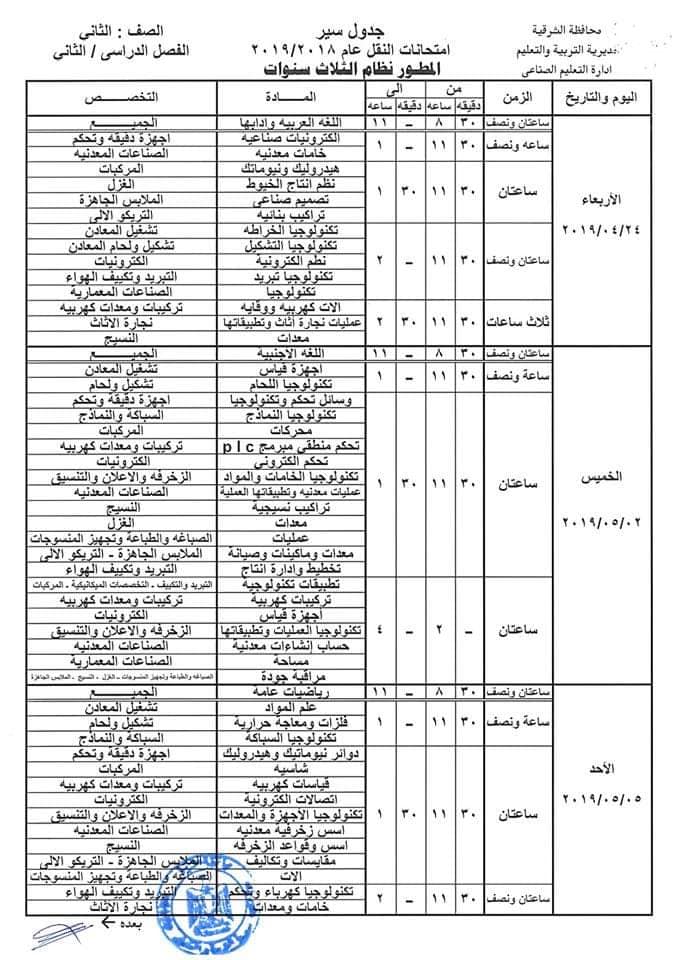 محافظة الشرقية
مديرية التربية والتعليم
ادارة التعليم الصناعى
جدول سير
امتحانات النقل عام ٢٠١٩/٢٠١٨
المطور نظام الثلاث سنوات
الصف : الثانى
الفصل الدراسى / الثانى
اليوم والتاريخ الزمن من الى المـــادة التخصـــص
دقيقه ساعه دقيقه ساعه
الأربعاء
٢٠١٩/٠٤/٢٤
ساعتان ونصف ٣٠ ٨ – ١١ اللغه العربيه وادابها الجميـــع
ساعه ونصف ٣٠ ١١ – ١ الكترونيات صناعيه اجهزة دقيقه وتحكم
خامات معدنيه الصناعات المعدنيه
ساعتان ٣٠ ١١ ٣٠ ١ هيدروليك ونيوماتك المركبات
نظم انتاج الخيوط الغزل
تصميم صناعى الملابس الجاهزة
تراكيب بنائيه التريكو الالى
ساعتان ونصف ٣٠ ١١ – ٢ تكنولوجيا الخراطه تشغيل المعادن
تكنولوجيا التشكيل تشكيل ولحام المعادن
نظم الكترونية الكترونيات
تكنولوجيا تبريد التبريد وتكييف الهواء
تكنولوجيا الصناعات المعمارية
ثلاث ساعات ٣٠ ١١ ٣٠ ٢ الات كهربيه ووقايه تركيبات ومعدات كهربيه
عمليات نجارة أثاث وتطبيقاتها نجارة الاثاث
معدات النسيج
الخميس
٢٠١٩/٠٥/٠٢
ساعتان ونصف ٣٠ ٨ – ١١ اللغه الاجنبية الجميـــع
ساعة ونصف ٣٠ ١١ – ١ اجهزة قياس تشغيل المعادن
تكنولوجيا اللحام تشكيل ولحام
ساعتان ٣٠ ١١ ٣٠ ١ وسائل تحكم وتكنولوجيا اجهزة دقيقة وتحكم
تكنولوجيا النماذج السباكة والنماذج
محركات المركبات
تحكم منطقى مبرمج plc تركيبات ومعدات كهربيه
تحكم الكترونى الكترونيات
تكنولوجيا الخامات والمواد الزخرفه والاعلان والتنسيق
عمليات معدنيه وتطبيقاتها العملية الصناعات المعدنيه
تراكيب نسيجية النسيج
معدات الغزل
عمليات الصباغه والطباعة وتجهيز المنسوجات
معدات وماكينات وصيانة الملابس الجاهزة - التريكو الالى
تخطيط وإدارة انتاج التبريد وتكييف الهواء
ساعتان – ٢ – ٤ تطبيقات تكنولوجيه التبريد والتكييف - التخصصات الميكانيكية - المركبات
تركيبات كهربية تركيبات ومعدات كهربيه
اجهزة قياس الكترونيات
تكنولوجيا العمليات وتطبيقاتها الزخرفه والاعلان والتنسيق
حساب إنشاءات معدنية الصناعات المعدنيه
مساحة الصناعات المعمارية
مراقبة جودة الصباغه والطباعة وتجهيز المنسوجات - الغزل - النسيج - الملابس الجاهزة
الأحد
٢٠١٩/٠٥/٠٥
ساعتان ونصف ٣٠ ٨ – ١١ رياضيات عامة الجميـــع
ساعة ونصف ٣٠ ١١ – ١ علم المواد تشغيل المعادن
فلزات ومعاجة حرارية تشكيل ولحام
تكنولوجيا السباكة السباكة والنماذج
ساعتان ٣٠ ١١ ٣٠ ١ دوائر نيوماتيك وهيدروليك اجهزة دقيقة وتحكم
شاسيه المركبات
قياسات كهربيه تركيبات ومعدات كهربيه
اتصالات الكترونية الكترونيات
تكنولوجيا الاجهزة والمعدات الزخرفه والاعلان والتنسيق
اسس زخرفية معدنيه الصناعات المعدنيه
اسس وقواعد الزخرفه النسيج
مقايسات وتكاليف الملابس الجاهزة - التريكو الالى
الات الصباغه والطباعة وتجهيز المنسوجات
ساعتان ونصف ٣٠ ١١ – ٢ تكنولوجيا كهرباء وتحكم التبريد وتكييف الهواء
خامات ومعدات نجارة الاثاث
بعده ←